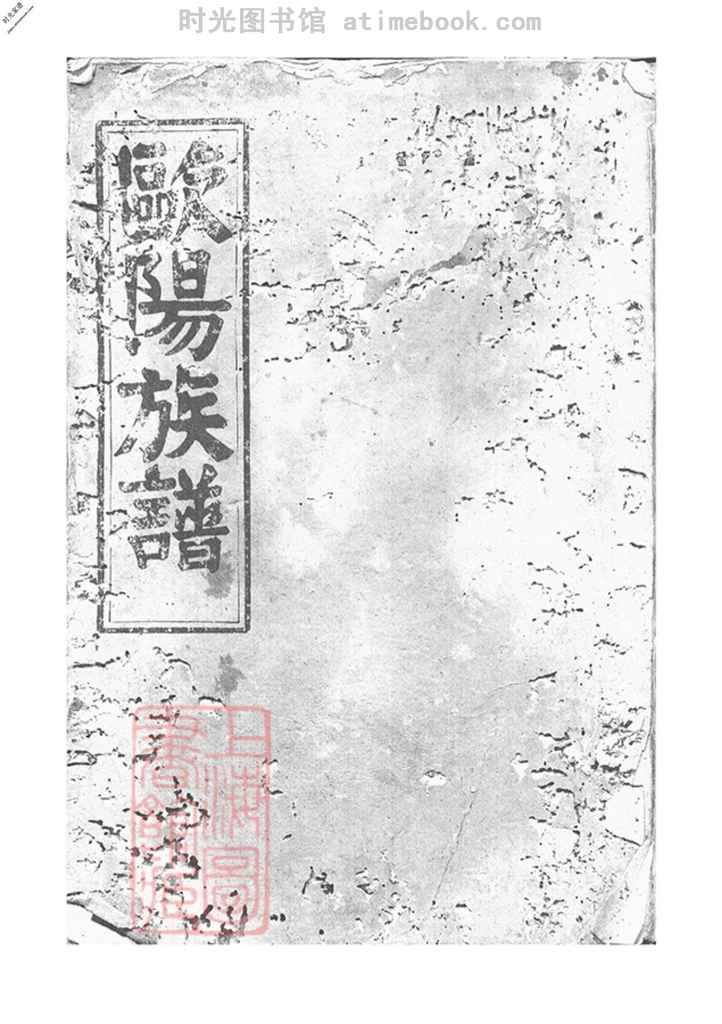 时光图书馆 atimebook.com
歐陽族譜
上海圖
書館藏